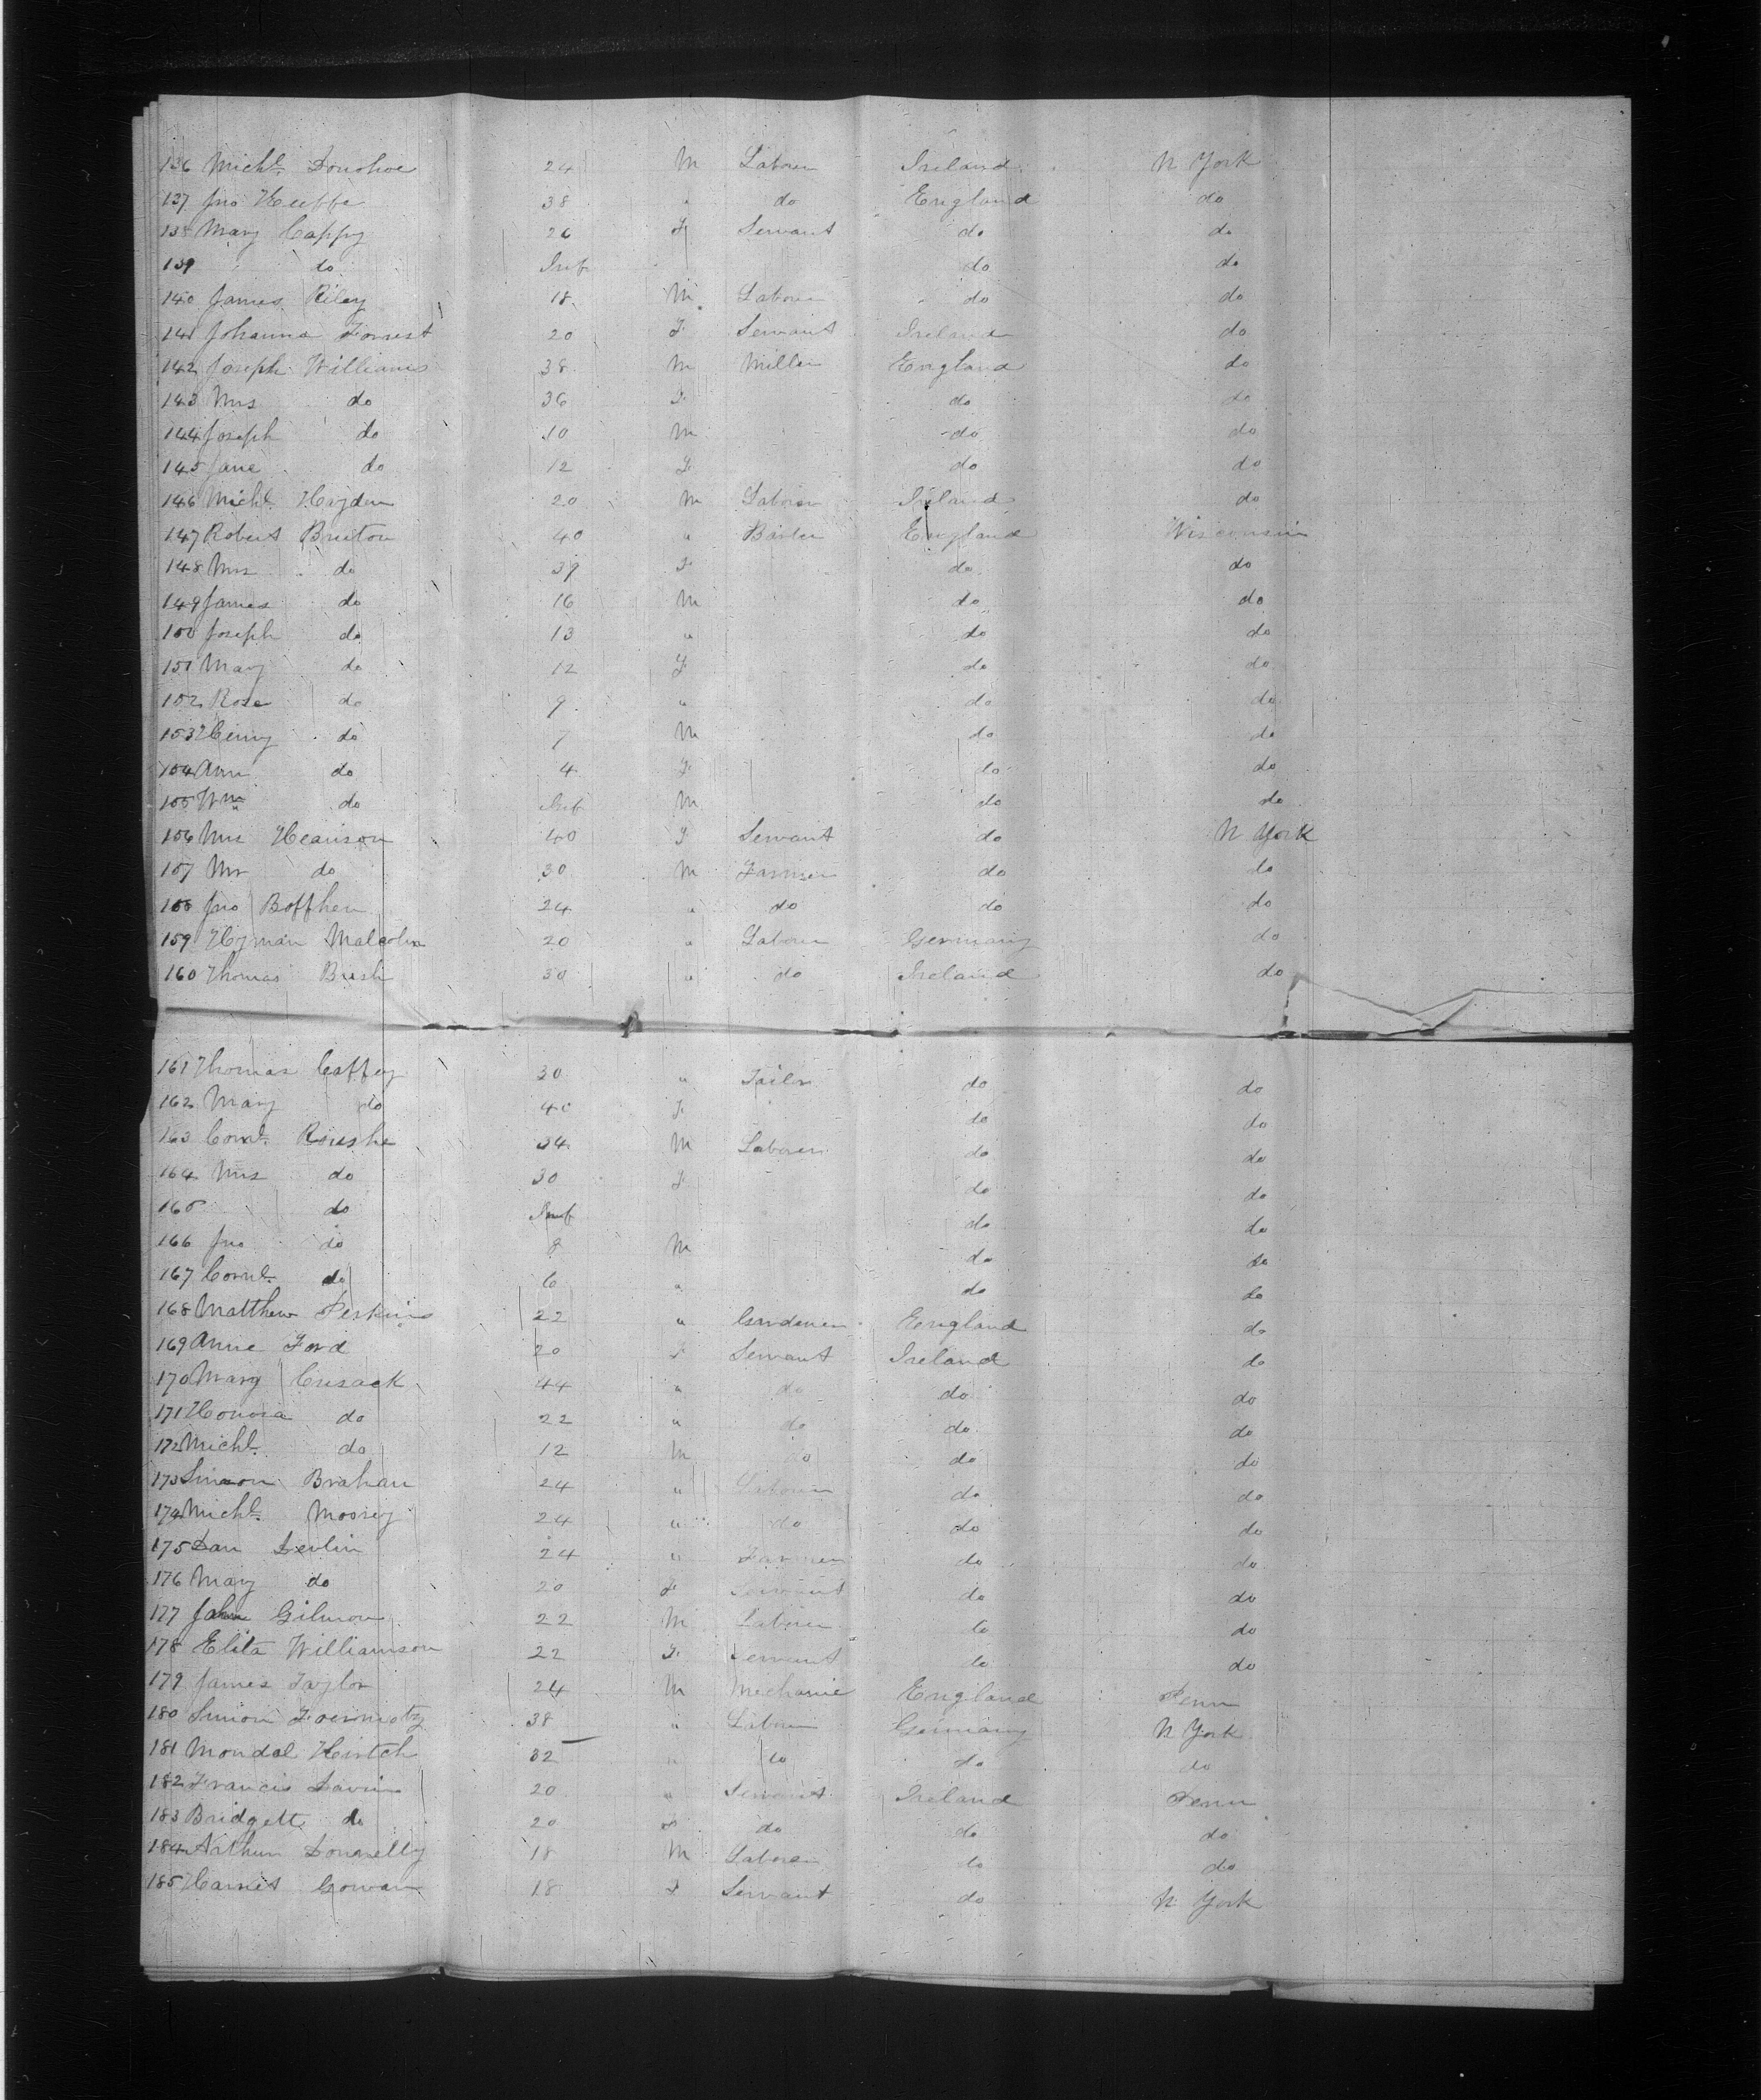 136 Michl. Donohoe 24 M Laborer Ireland N York
137 Jno Heuffe 38 " do England do
138 Mary Caffry 26 F Servant do do
139 " do Inf do do
140 James Riley 18 M Laborer do do
141 Johanna Forrest 20 F Servant Ireland do
142 Joseph Williams 38 M Miller England do
143 Mrs do 36 F do do
144 Joseph do 10 M do do
145 Jane do 12 F do do
146 Michl. Hayden 20 M Laborer Ireland do
147 Robert Bruton 40 " England Wisconsin
148 Mrs do 39 F do do
149 James do 16 M do do
150 Joseph do 13 " do do
151 Mary do 12 F do do
152 Rose do 9 " do do
153 Henry do 7 M do do
154 Ann do 4 F do do
155 Wm do Inf M do do
156 Mrs Hearison 40 F Servant do N York
157 Mr do 30 M Farmer do do
158 Jno Boffhen 24 " do do do
159 Hyman Malcolm 20 " Laborer Germany do
160 Thomas Bush 30 " do Ireland do
161 Thomas Caffey 30 " Tailor do do
162 Mary do 40 F do do
163 Cornl. Roushe 34 M Laborer do do
164 Mrs do 30 F do do
165 do Inf do do
166 Jno do 8 M do do
167 Cornl. do 6 " do do
168 Matthew Perkins 22 " Gardener England do
169 Anne Ford 20 F Servant Ireland do
170 Mary Cusack 44 " do do do
171 Honora do 22 " do do do
172 Michl. do 12 M do do do
173 Simon Brahan 24 " Laborer do do
174 Michl. Moorey 24 " do do do
175 Dan Devlin 24 " Farmer do do
176 Mary do 20 F Servant do do
177 John Gilmore 22 M Laborer do do
178 Eliza Williamson 22 F Servant do do
179 James Taylor 24 M Mechanic England Penn
180 Simon 38 " Laborer Germany N York
181 Mondal Hirtch 32 " do do do
182 Francis Davin 20 " Servant Ireland Penn
183 Bridgett do 20 F do do do
184 Arthur Donnelly 18 M Laborer do do
185 Harriet Gowan 18 F Servant do N York